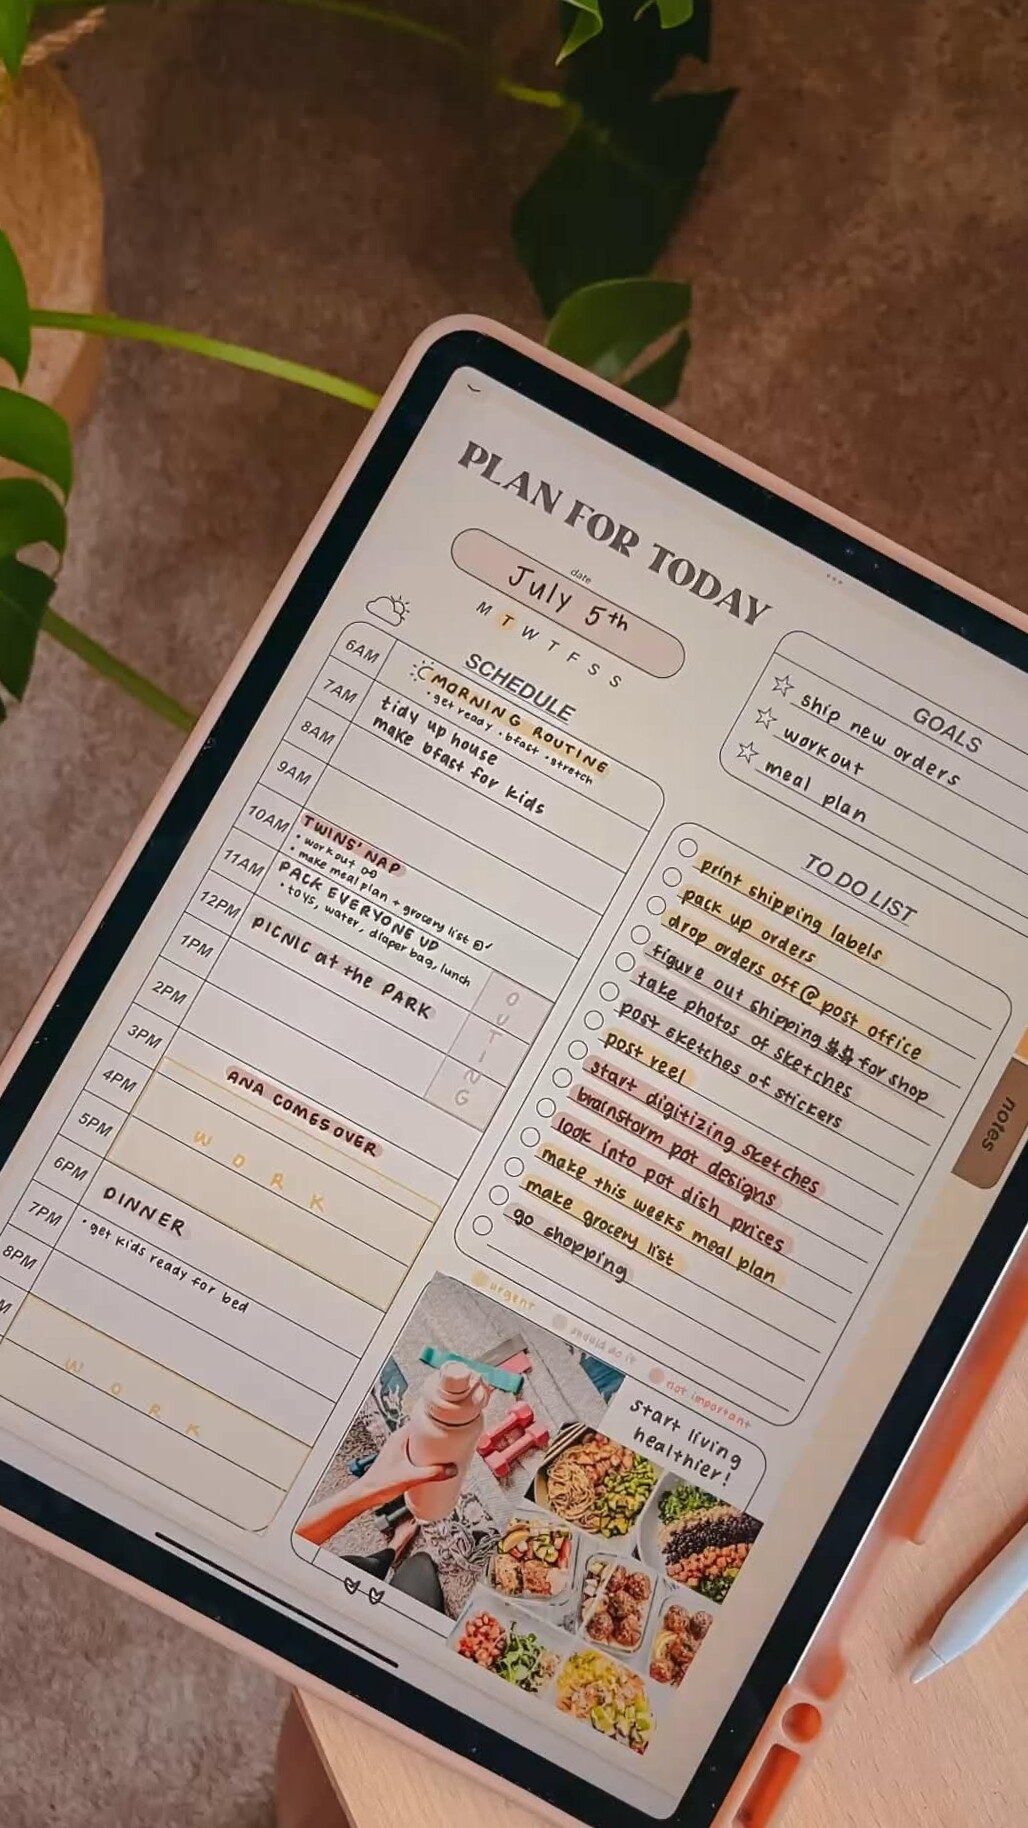 PLAN FOR TODAY
date
July 5th
M T W T F S S
SCHEDULE
6AM
MORNING ROUTINE
• get ready • bfast • stretch
7AM
tidy up house
make bfast for kids
8AM
9AM
10AM
TWINS' NAP
• workout
• make meal plan + grocery list
11AM
PACK EVERYONE UP
• toys, water, diaper bag, lunch
12PM
PICNIC at the PARK
OUTING
1PM
2PM
3PM
ANA COMES OVER
4PM
WORK
5PM
6PM
DINNER
• get kids ready for bed
7PM
8PM
M
WORK
GOALS
ship new orders
workout
meal plan
TO DO LIST
print shipping labels
pack up orders
drop orders off @ post office
figure out shipping $$ for shop
take photos of sketches
post sketches of stickers
post reel
start digitizing sketches
brainstorm pot designs
look into pot dish prices
make this weeks meal plan
make grocery list
go shopping
urgent should do it not important
start living
healthier!
notes